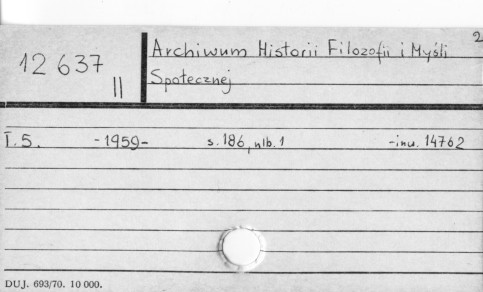 2
12 637
II
Archiwum Historii Filozofii i Myśli
Społecznej
T. 5. -1959- s. 186, nlb. 1 -inw. 14762
DUJ. 693/70. 10 000.